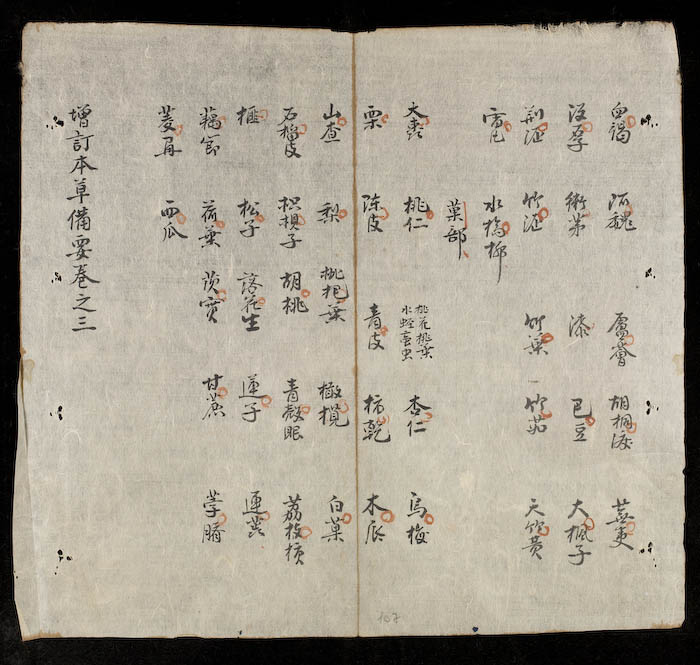 血竭 阿魏 蘆薈 胡桐淚 蕪荑
衛茅 漆 巴豆 大楓子
荊瀝 竹瀝 竹葉 竹茹 天竹黃
雷丸 水楊柳
菓部
大棗 桃仁 桃花桃葉 水蛭䖟虫 杏仁 烏梅
栗 陳皮 青皮 柿乾 木瓜
山查 梨 枇杷葉 橄欖 白菓
石榴皮 枳椇子 胡桃 荔枝核
榧 松子 落花生 蓮子 蓮蕊
藕節 荷葉 芡實 甘蔗 荸臍
菱角 西瓜
增訂本草備要卷之三
107